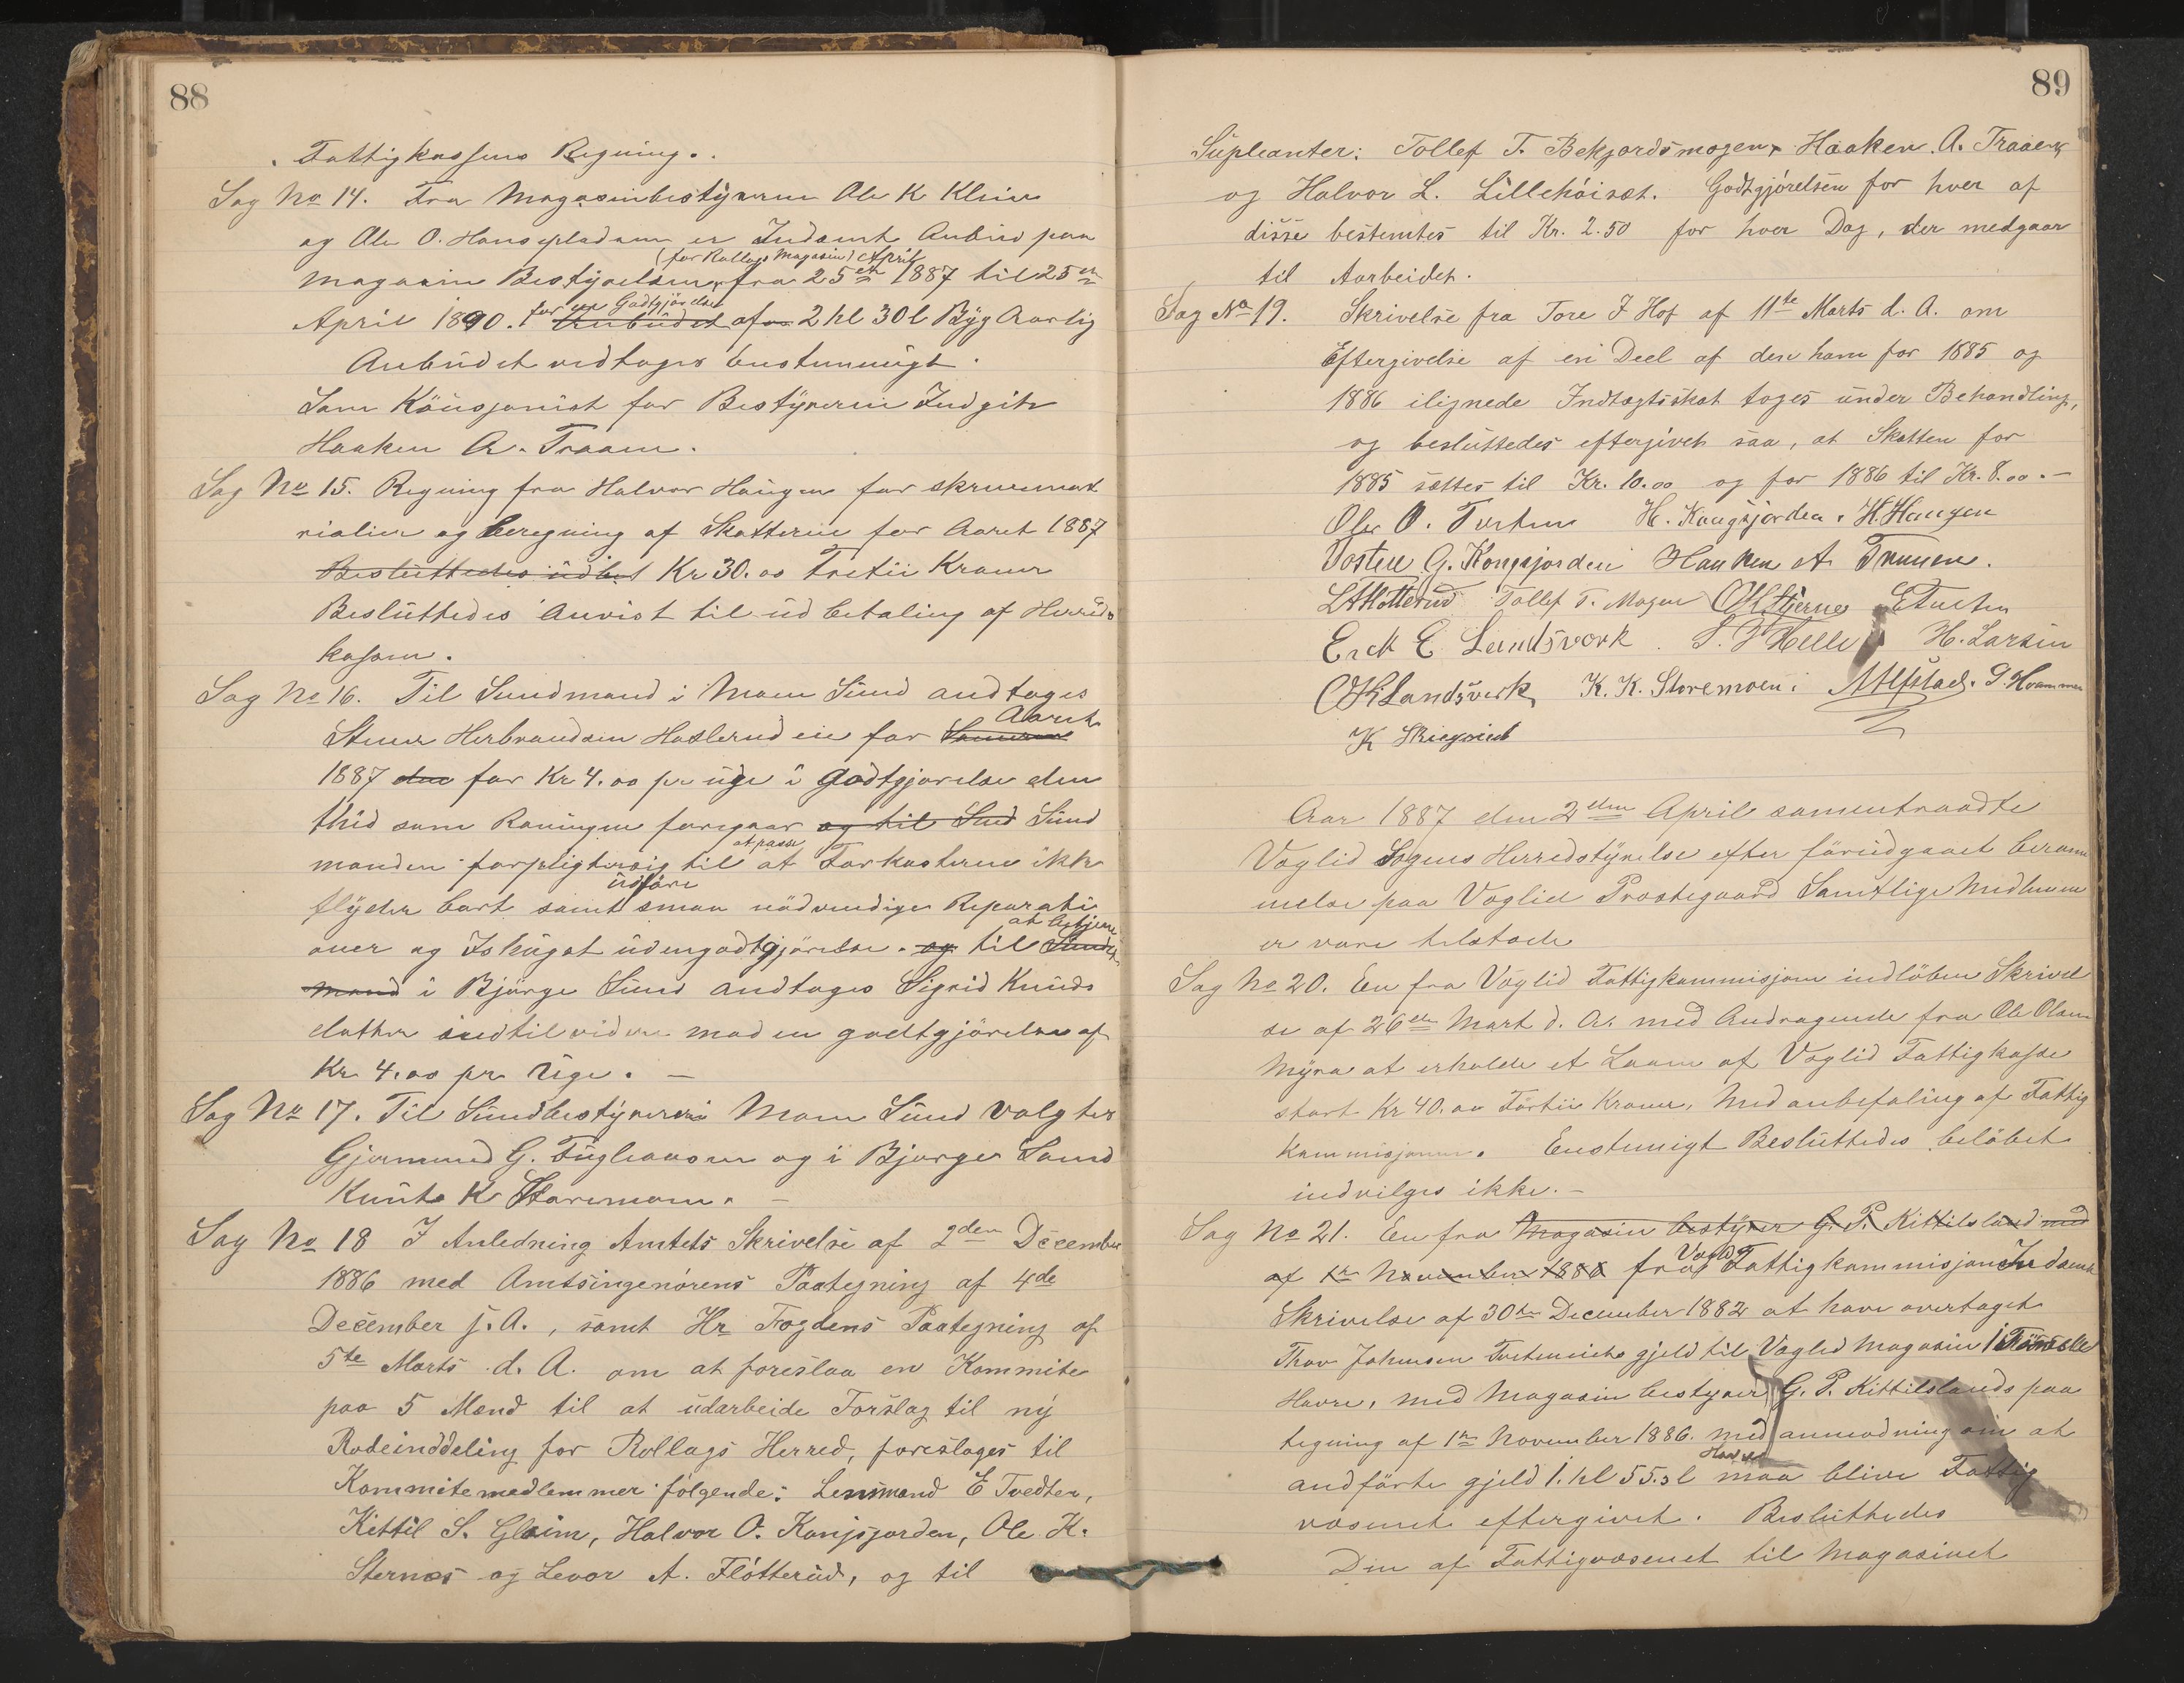 88
Fattigkassens Regning.
Sag No 14. Fra Magasinbestyrerne Ole K Kleiv
og Ole O. Hansepladsen er Indsent Anbud paa
(for Rollags Magasin) April
Magasin Bestyrelsen fra 25de 1887 til 25de
for en Godtgjørelse
April 1890. Anbudet af 2 hl 30 l Byg Aarlig
Anbudet vedtages Enstemmigt.
Som Kausjonist for Bestyreren Indgik
Haaken A. Traaen.
Sag No 15. Regning fra Halvor Haugen for skrivemat
rialier og beregning af Skatterne for Aaret 1887
Besluttedes udbet Kr 30.00 Tretii Kroner
Besluttedes Anvist til udbetaling af Herreds
kassen.
Sag No 16. Til Sundmand i Moen Sund andtages
Aaret
Stener Herbrandsen Haslerudeie for Someren
1887 den for Kr 4.00 pr uge i Godtgjørelse den
thid som Roningen foregaar og til Sund Sund
at passe
manden forpligter sig til at Farkosterne ikke
udføre
flyder bort samt smaa nødvendige Reparati
at betjene
oner og Ishugst uden godtgjørelse. og til Sunds
mand i Bjørge Sund andtages Sigrid Knuds
datter indtil videre mod en godtgjørelse af
Kr 4.00 pr Uge. —
Sag No 17. Til Sundbestyrer i Moen Sund valgtes
Gjermund G. Fugleaasen og i Bjørge Sund
Knut K Storemoen. —
Sag No 18 I Anledning Amtets Skrivelse af 2den December
1886 med Amtsingenørens Paategning af 4de
December s. A., samt Hr Fogdens Paategning af
5te Marts d. A. om at foreslaa en Kommite
paa 5 Mænd til at udarbeide Forslag til ny
Rodeinddeling for Rollags Herred, foreslages til
Kommitemedlemmer følgende: Lensmand E Tvedten,
Kittil S. Gloim, Halvor O. Kongsjorden, Ole K.
Sternæs og Levor A. Fløtterud, og til
89
Supleanter: Tollef T. Bekjordsmogen, Haaken A. Traaen
og Halvor L. Lillehøiset. Godtgjørelsen for hver af
disse bestemtes til Kr. 2.50 for hver Dag, der medgaar
til Aarbeidet.
Sag No 19. Skrivelse fra Tore I Hof af 11te Marts d. A. om
Eftergivelse af en Deel af den ham for 1885 og
1886 ilignede Indtægtsskat toges under Behandling,
og besluttedes eftergivet saa, at Skatten for
1885 sættes til Kr. 10.00 og for 1886 til Kr. 8.00. —
Ole O. Tveten H. Kongsjorden. H. Haugen
Tosten G. Kongsjorden Haaken A Traaen.
L A Fløtterud Tollef T. Mogen E Tvedten
Erik E Landsverk. H. Larsen
Landsverk K. K. Storemoen. P. Hvammen
Aar 1887 den 2den April samentraadte
Væglid Sogns Herredstyrelse efter forudgaaet beram
melse paa Væglid Præstegaard Samtlige Medlemm
er vare tilstede
Sag No 20. En fra Væglid Fattigkommisjon indløben Skrivel
se af 26de Mart d. A. med Andragende fra Ole Olsen
Myra at erholde et Laan af Væglid Fattigkasse
stort Kr 40.00 Førtii Kroner, Med anbefaling af Fattig
kommisjonen. Enstemigt Besluttedes beløbet
indvilges ikke. —
Sag No 21. En fra Magasin bestyrer G. P. Kittilsland med
Væglid
af 1ste November 1886 fra Fattigkommisjon Indsent
Skrivelse af 30te December 1882 at have overtaget
Thov Johnsen gjeld til Væglid Magasin i
Havre, med Magasin bestyrer G. P. Kittilslands paa
tegning af 1ste November 1886. med anmodning om at
Havre
andførte gjeld 1. hl 55.3 l maa blive Fattig
væsenet eftergivet. Besluttedes
Den af Fattigvæsenet til Magasinet